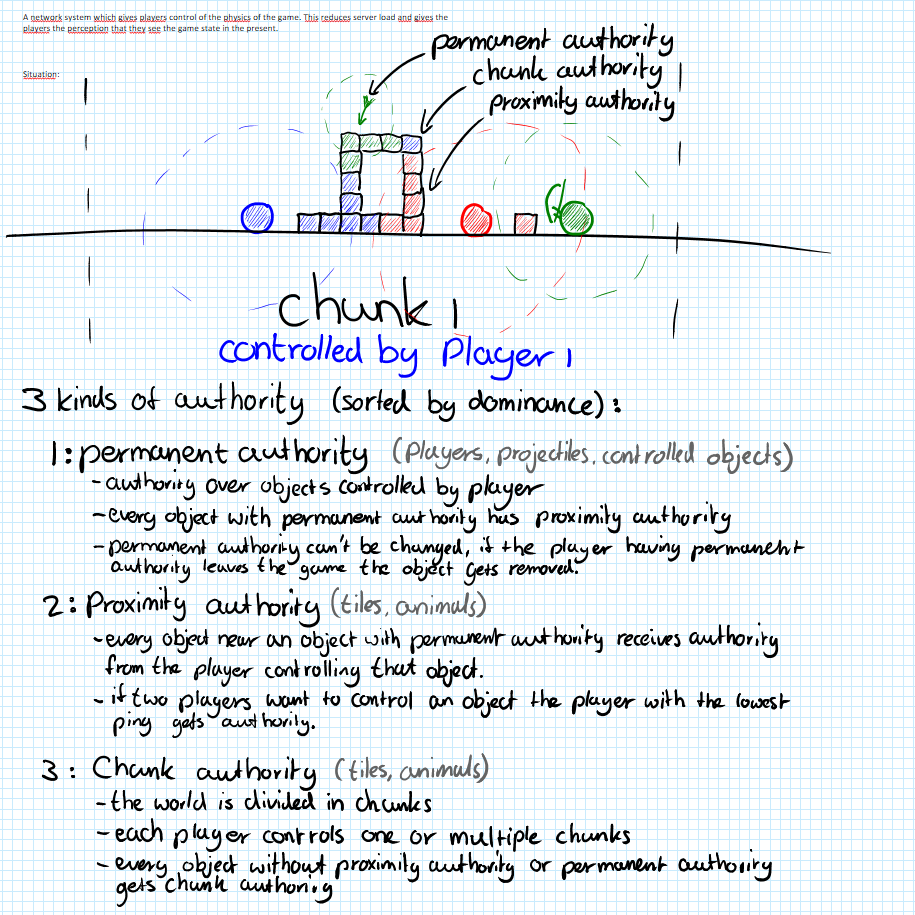 A network system which gives players control of the physics of the game. This reduces server load and gives the
players the perception that they see the game state in the present.
permanent authority
Situation:
chunk authority
proximity authority
chunk 1
controlled by Player 1
3 kinds of authority (sorted by dominance):
1: permanent authority (Players, projectiles, controlled objects)
- authority over objects controlled by player
- every object with permanent authority has proximity authority
- permanent authority can't be changed, if the player having permanent
authority leaves the game the object gets removed.
2: Proximity authority (tiles, animals)
- every object near an object with permanent authority receives authority
from the player controlling that object.
- if two players want to control an object the player with the lowest
ping gets authority.
3: Chunk authority (tiles, animals)
- the world is divided in chunks
- each player controls one or multiple chunks
- every object without proximity authority or permanent authority
gets chunk authority